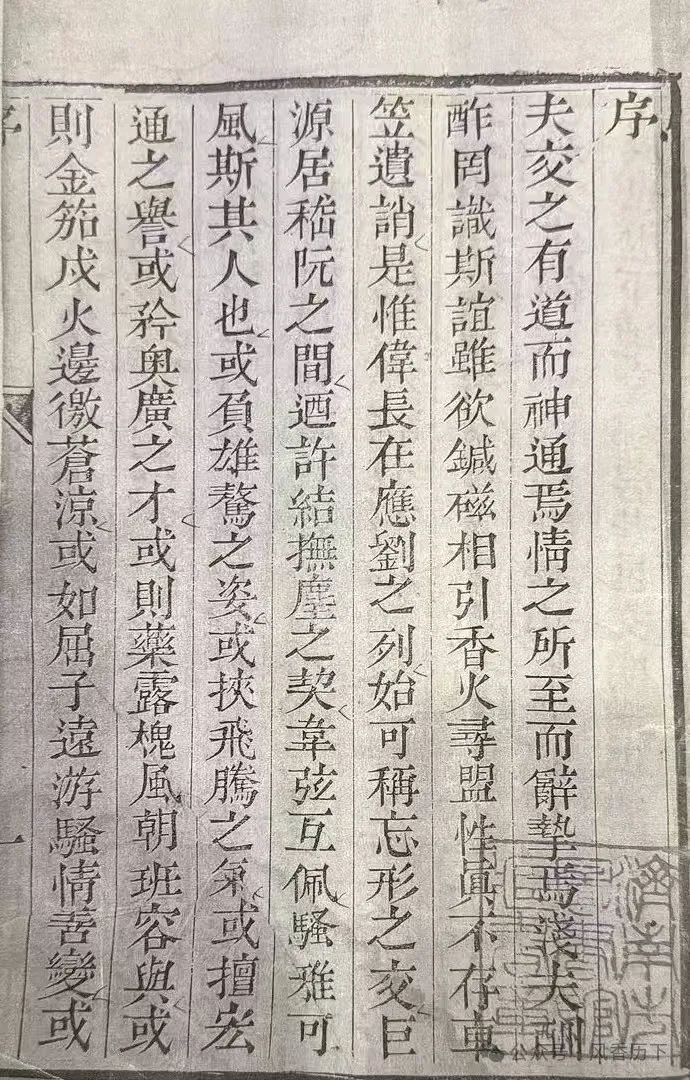 序
夫交之有道而神通焉情之所至而辭摯焉淺夫詶
酢罔識斯誼雖欲鍼磁相引香火尋盟性眞不存車
笠遺誚是惟偉長在應劉之列始可稱忘形之交巨
源居嵇阮之間迺許結撫塵之契韋弦互佩騷雅可
風斯其人也或負雄驁之姿或挾飛騰之氣或擅宏
通之譽或矜奥廣之才或則藥露槐風朝班容與或
則金笳戍火邊徼蒼涼或如屈子遠游騷情善變或
序
一
公众号 · 风香历下